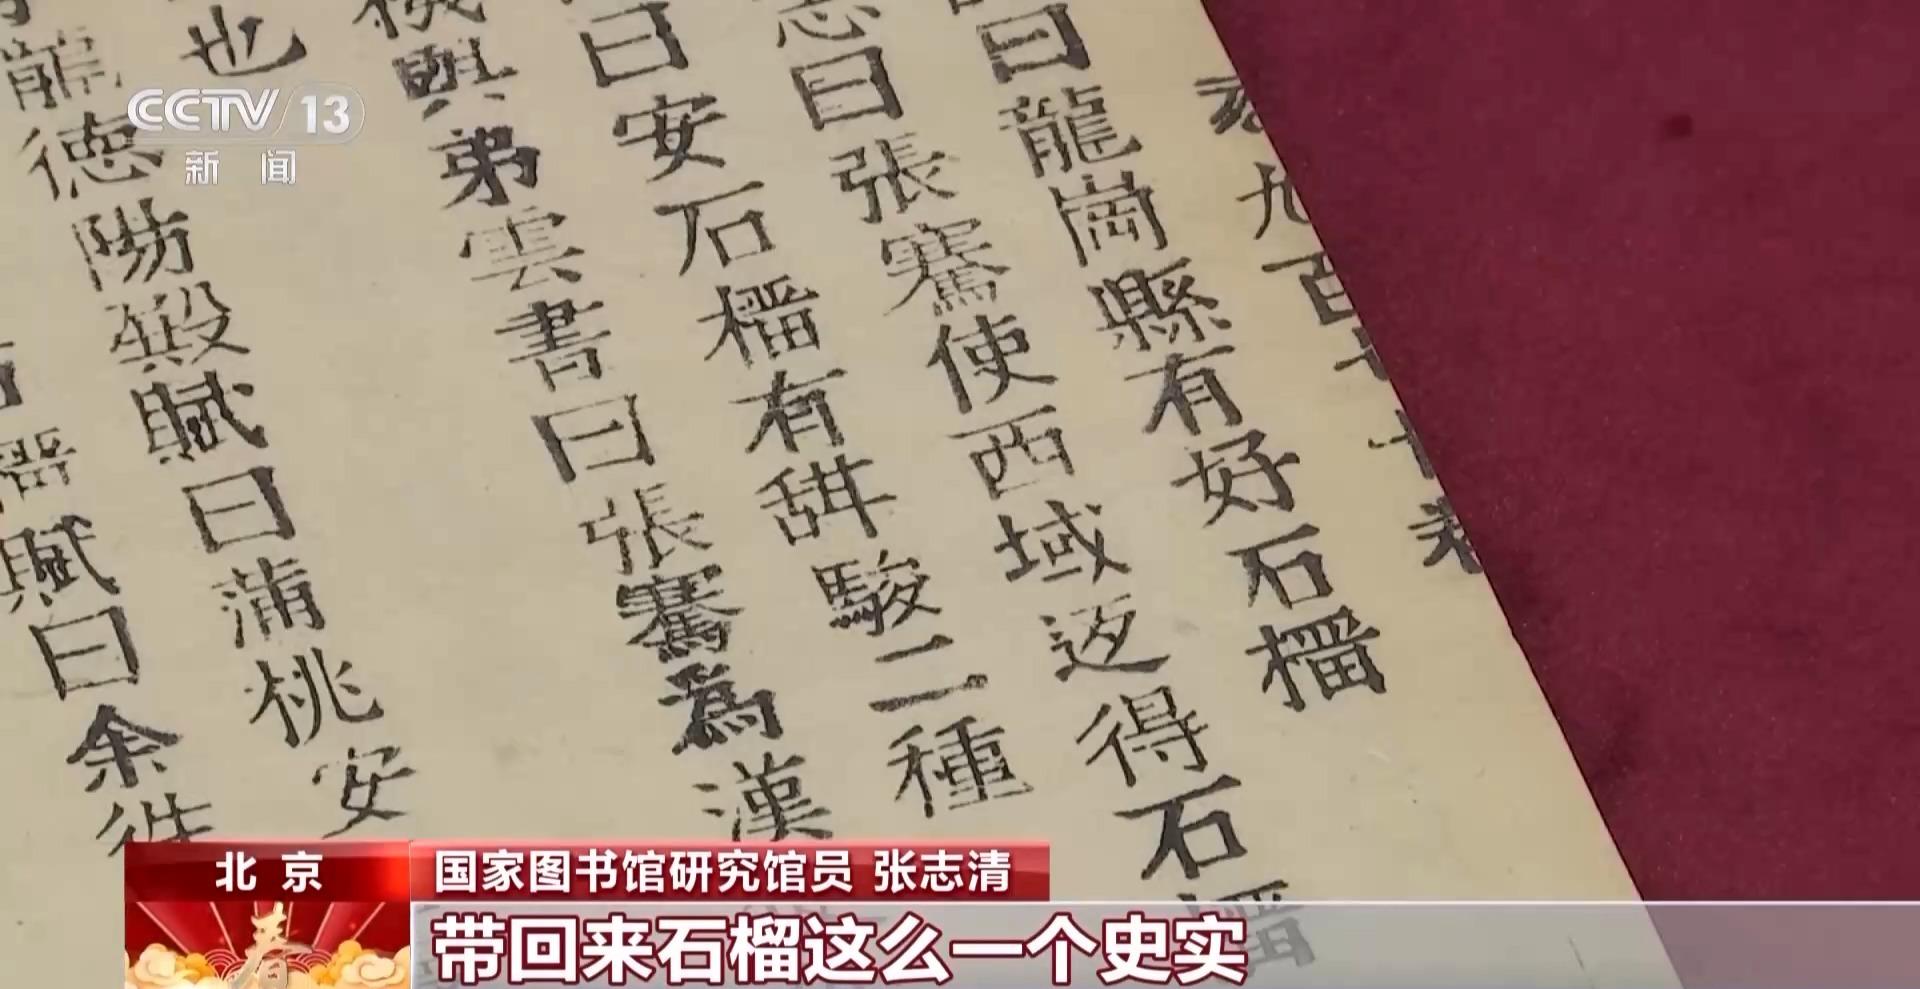 CCTV 13
新闻
九百七十卷
曰龍崗縣有好石橊
志曰張騫使西域迈得石橊
曰安石橊有甛駿二種
機與弟雲書曰張騫為漢
也
龍德陽殿賦曰蒲桃安
賦曰余徃
北京
国家图书馆研究馆员 张志清
带回来石榴这么一个史实